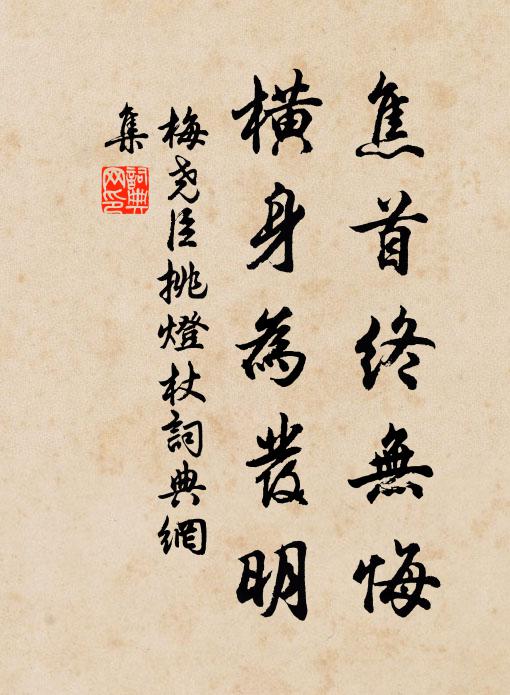 焦首終無悔
橫身為發明
梅堯臣挑燈杖詞典網
集
詞典
网印